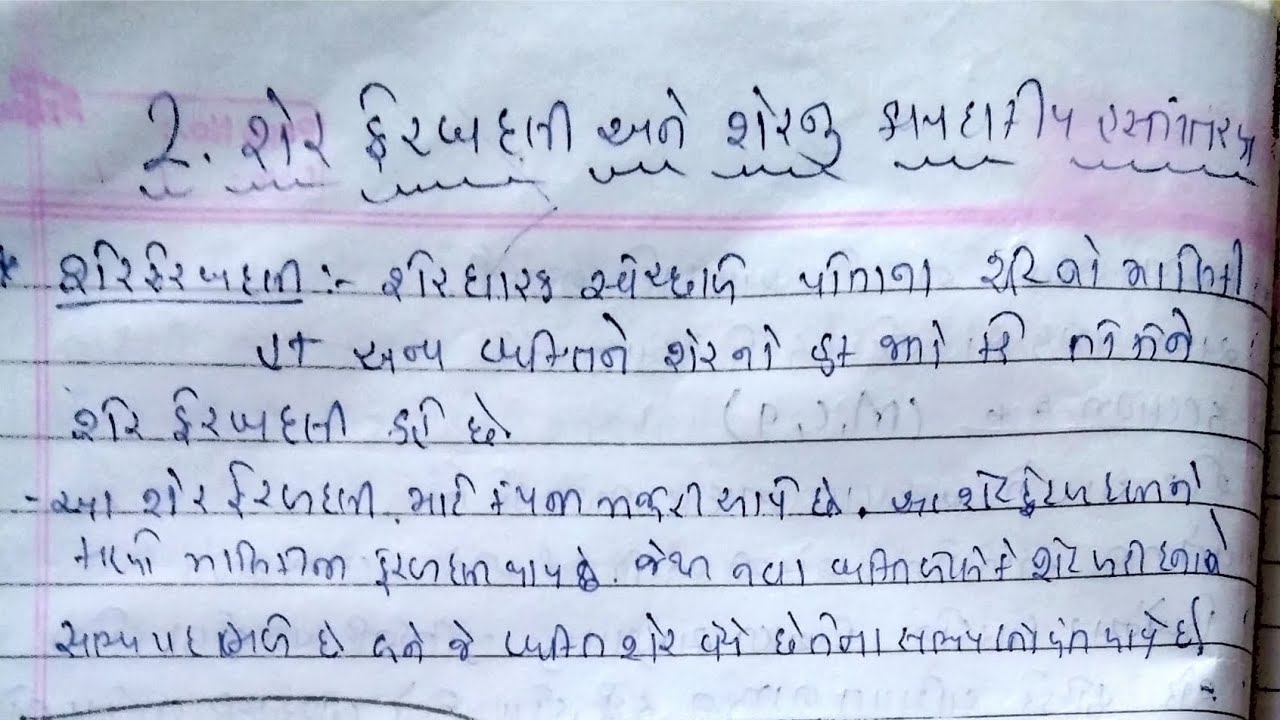 2. શેર ફેરબદલી અને શેરનું કાયદાકીય હસ્તાંતરણ
શેરફેરબદલી :- શેરધારક સ્વેચ્છાએ પોતાના શેરનો માલિકી
હક અન્ય વ્યક્તિને શેરનો હક આપે
શેર ફેરબદલી કહે છે
- આ શેર ફેરબદલી માટે કંપની મંજુરી આપે છે. આ શેર ફેરબદલીને
માલિકીની ફેરબદલી થાય છે. જેથી નવા વ્યક્તિ શેર ખરીદનારને
સભ્યપદ મળે છે અને જે વ્યક્તિ શેર વેચે છે તેના સભ્યપદનો અંત આવે છે.